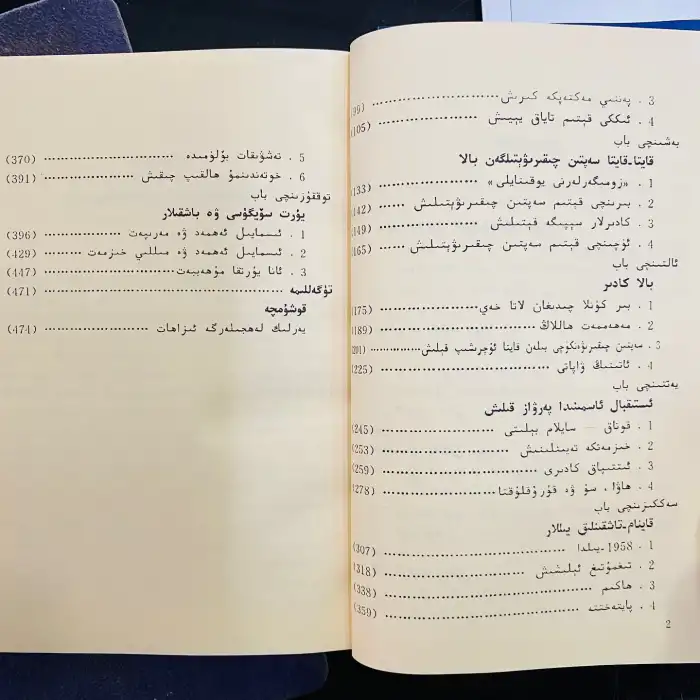 3 . پەننىي مەكتەپكە كىرىش (99)
4 . ئىككى قېتىم تاياق يېيىش (105)
بەشىنچى باب
قايتا-قايتا سەپتىن چىقىرىۋېتىلگەن بالا
1 . «زومىگەرلەرنى يوقىتايلى» (133)
2 . بىرىنچى قېتىم سەپتىن چىقىرىۋېتىلىش (142)
3 . كادىرلار سىپىگە قېتىلىش (149)
4 . ئۈچىنچى قېتىم سەپتىن چىقىرىۋېتىلىش (165)
ئالتىنچى باب
بالا كادىر
1 . بىر كۈنلا چىدىغان لاتا خەي (175)
2 . مەھەممەت ھاللاڭ (189)
3 . سەپتىن چىقىرىۋەتكۈچى بىلەن قايتا ئۇچرىشىپ قېلىش (201)
4 . ئاتىنىڭ ۋاپاتى (225)
يەتتىنچى باب
ئىستىقبال ئاسمىنىدا پەرۋاز قىلىش
1 . قوناق — سايلام بېلىتى (245)
2 . خىزمەتكە تەيىنلىنىش (253)
3 . ئىتتىپاق كادىرى (259)
4 . ھاۋا، سۇ ۋە قۇرۇقلۇقتا (278)
سەككىزىنچى باب
قاينام-تاشقىنلىق يىللار
1 . 1958-يىلدا (307)
2 . تىغمۇتىغ ئېلىشىش (318)
3 . ھاكىم (338)
4 . پايتەختتە (359)
2
5 . تەشۋىقات بۆلۈمىدە (370)
6 . خوتەندىنمۇ ھالقىپ چىقىش (391)
توققۇزىنچى باب
يۇرت سۆيگۈسى ۋە باشقىلار
1 . ئىسمايىل ئەھمەد ۋە مەرىپەت (396)
2 . ئىسمايىل ئەھمەد ۋە مىللىي خىزمەت (429)
3 . ئانا يۇرتقا مۇھەببەت (447)
تۈگەللىمە (471)
قوشۇمچە
يەرلىك لەھجىلەرگە ئىزاھات (474)